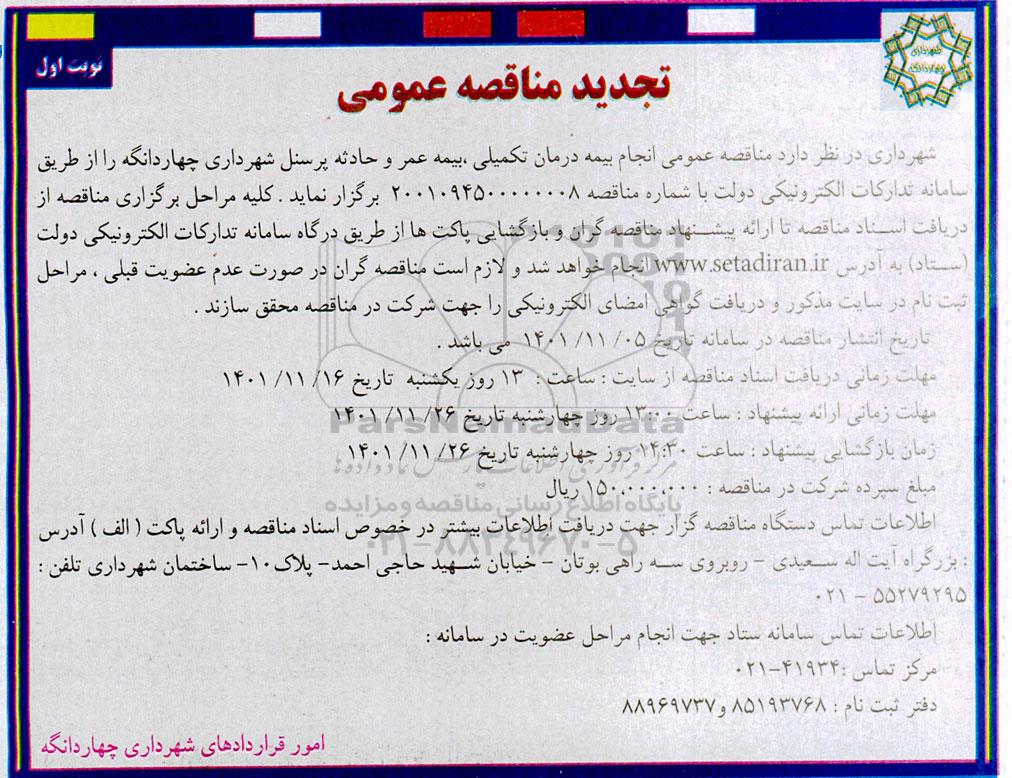 نوبت اول
شهرداری
چهاردانگه
تجدید مناقصه عمومی
شهرداری در نظر دارد مناقصه عمومی انجام بیمه درمان تکمیلی ،بیمه عمر و حادثه پرسنل شهرداری چهاردانگه را از طریق
سامانه تدارکات الکترونیکی دولت با شماره مناقصه ۲۰۰۱۰۹۴۵۰۰۰۰۰۰۰۸ برگزار نماید . کلیه مراحل برگزاری مناقصه از
دریافت اسناد مناقصه تا ارائه پیشنهاد مناقصه گران و بازگشایی پاکت ها از طریق درگاه سامانه تدارکات الکترونیکی دولت
(ستاد) به آدرس www.setadiran.ir انجام خواهد شد و لازم است مناقصه گران در صورت عدم عضویت قبلی ، مراحل
ثبت نام در سایت مذکور و دریافت گواهی امضای الکترونیکی را جهت شرکت در مناقصه محقق سازند .
تاریخ انتشار مناقصه در سامانه تاریخ ۰۵ /۱۱/ ۱۴۰۱ می باشد .
مهلت زمانی دریافت اسناد مناقصه از سایت : ساعت : ۱۳ روز یکشنبه تاریخ ۱۶/ ۱۱/ ۱۴۰۱
مهلت زمانی ارائه پیشنهاد : ساعت ۱۳:۰۰ روز چهارشنبه تاریخ ۲۶/ ۱۱/ ۱۴۰۱
زمان بازگشایی پیشنهاد : ساعت ۱۴:۳۰ روز چهارشنبه تاریخ ۲۶/ ۱۱/ ۱۴۰۱
مبلغ سپرده شرکت در مناقصه : ۱۵۰،۰۰۰،۰۰۰ ریال
اطلاعات تماس دستگاه مناقصه گزار جهت دریافت اطلاعات بیشتر در خصوص اسناد مناقصه و ارائه پاکت ( الف ) آدرس
: بزرگراه آیت اله سعیدی - روبروی سه راهی بوتان - خیابان شهید حاجی احمد- پلاک۱۰- ساختمان شهرداری تلفن :
۵۵۲۷۹۲۹۵ - ۰۲۱
اطلاعات تماس سامانه ستاد جهت انجام مراحل عضویت در سامانه :
مرکز تماس :۴۱۹۳۴-۰۲۱
دفتر ثبت نام : ۸۵۱۹۳۷۶۸ و۸۸۹۶۹۷۳۷
امور قراردادهای شهرداری چهاردانگه
ParsNamadData
مرکز فرآوری اطلاعات پارس نماد داده ها
پایگاه اطلاع رسانی مناقصه و مزایده
۰۲۱-۸۸۳۴۹۶۷۰-۵